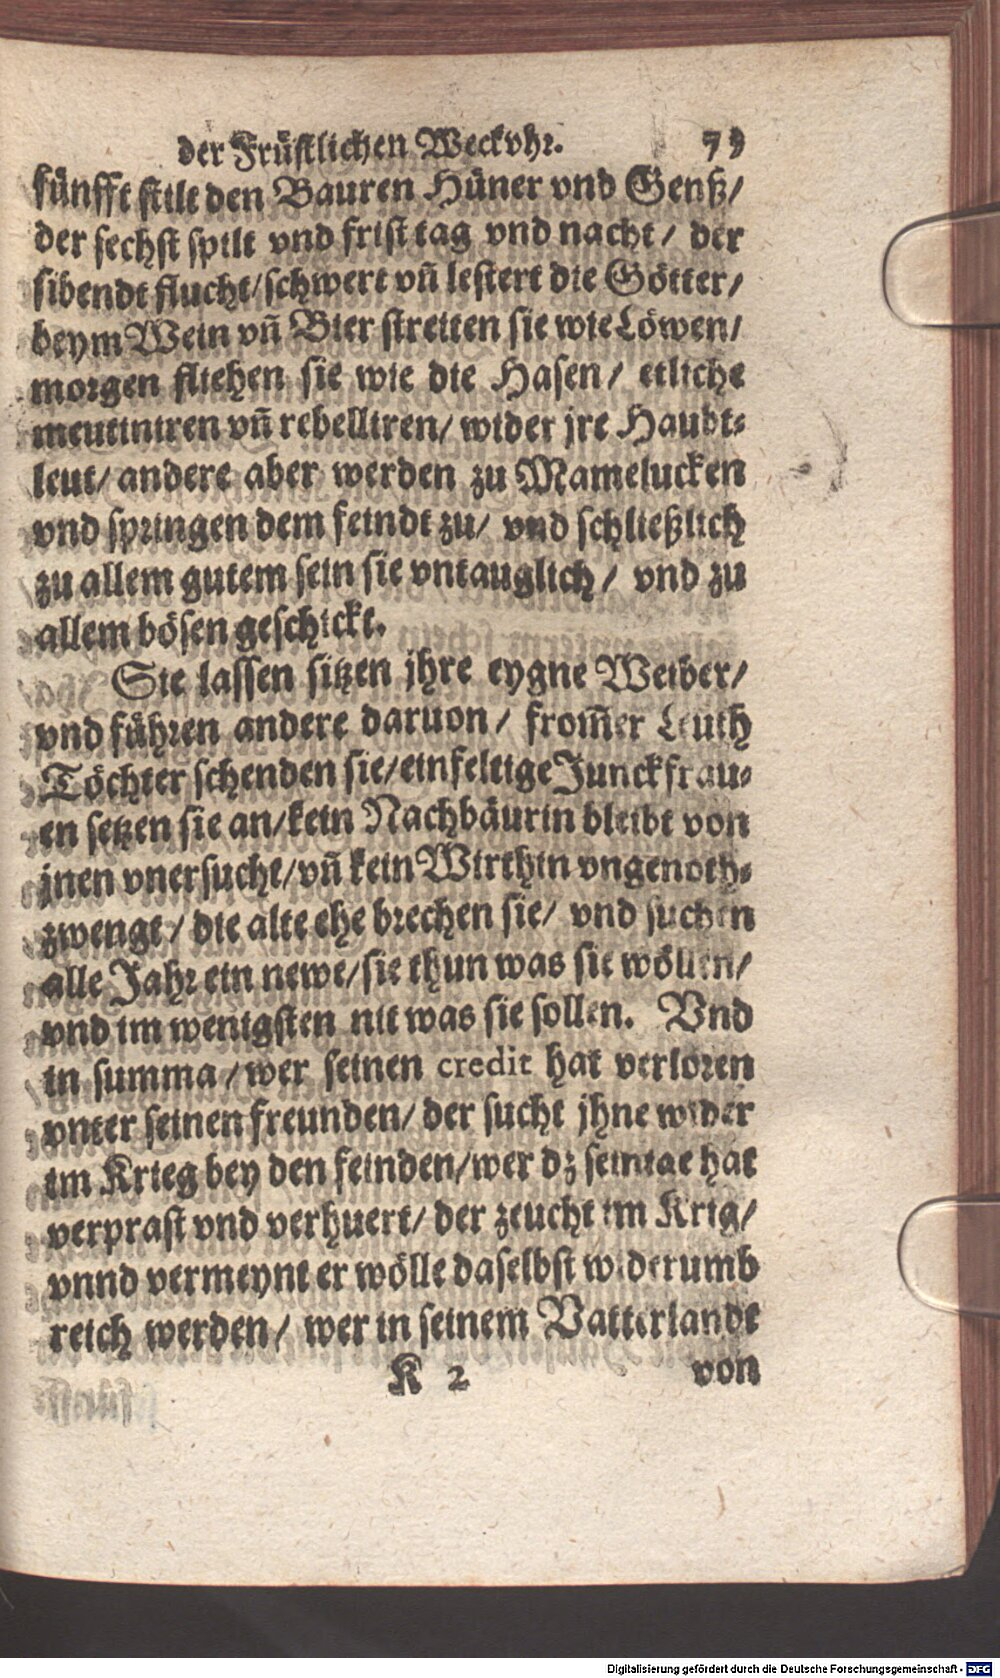 der Früstlichen Weckvhr. 79
fünfft stilt den Bauren Hüner vnd Genß/
der sechst spilt vnd frist tag vnd nacht/ der
sibendt flucht/schwert vñ lestert die Götter/
beym Wein vñ Bier streiten sie wie Löwen/
morgen fliehen sie wie die Hasen/ etliche
meutiniren vñ rebelliren/ wider jre Haubt-
leut/ andere aber werden zu Mamelucken
vnd springen dem feindt zu/ vnd schließlich
zu allem gutem sein sie vntauglich/ vnd zu
allem bösen geschickt.
Sie lassen sitzen jhre eygne Weiber/
vnd führen andere daruon/ from̃er Leuth
Töchter schenden sie/einfeltige Junckfrau-
en setzen sie an/kein Nachbäurin bleibt von
jnen vnersucht/vñ kein Wirthin vngenoth-
zwengt/ die alte ehe brechen sie/ vnd suchen
alle Jahr ein newe/sie thun was sie wöllen/
vnd im wenigsten nit was sie sollen. Vnd
in summa/wer seinen credit hat verloren
vnter seinen freunden/ der sucht jhne wider
im Krieg bey den feinden/wer dz seinige hat
verprast vnd verhuert/ der zeucht im Krig/
vnnd vermeynt er wölle daselbst widerumb
reich werden/ wer in seinem Vatterlandt
K 2 von
Digitalisierung gefördert durch die Deutsche Forschungsgemeinschaft - DFG